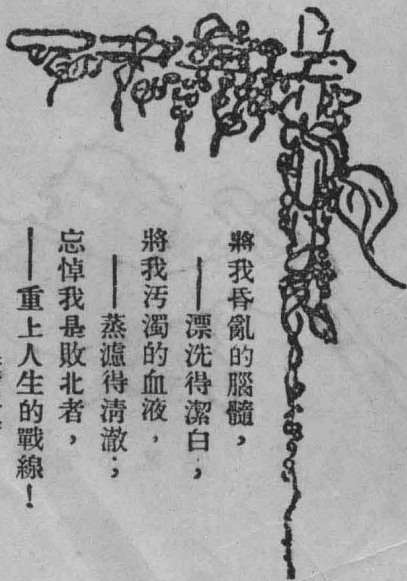 將我昏亂的腦髓，
——漂洗得潔白，
將我汚濁的血液，
——蒸濾得清澈；
忘悼我是敗北者，
——重上人生的戰線！